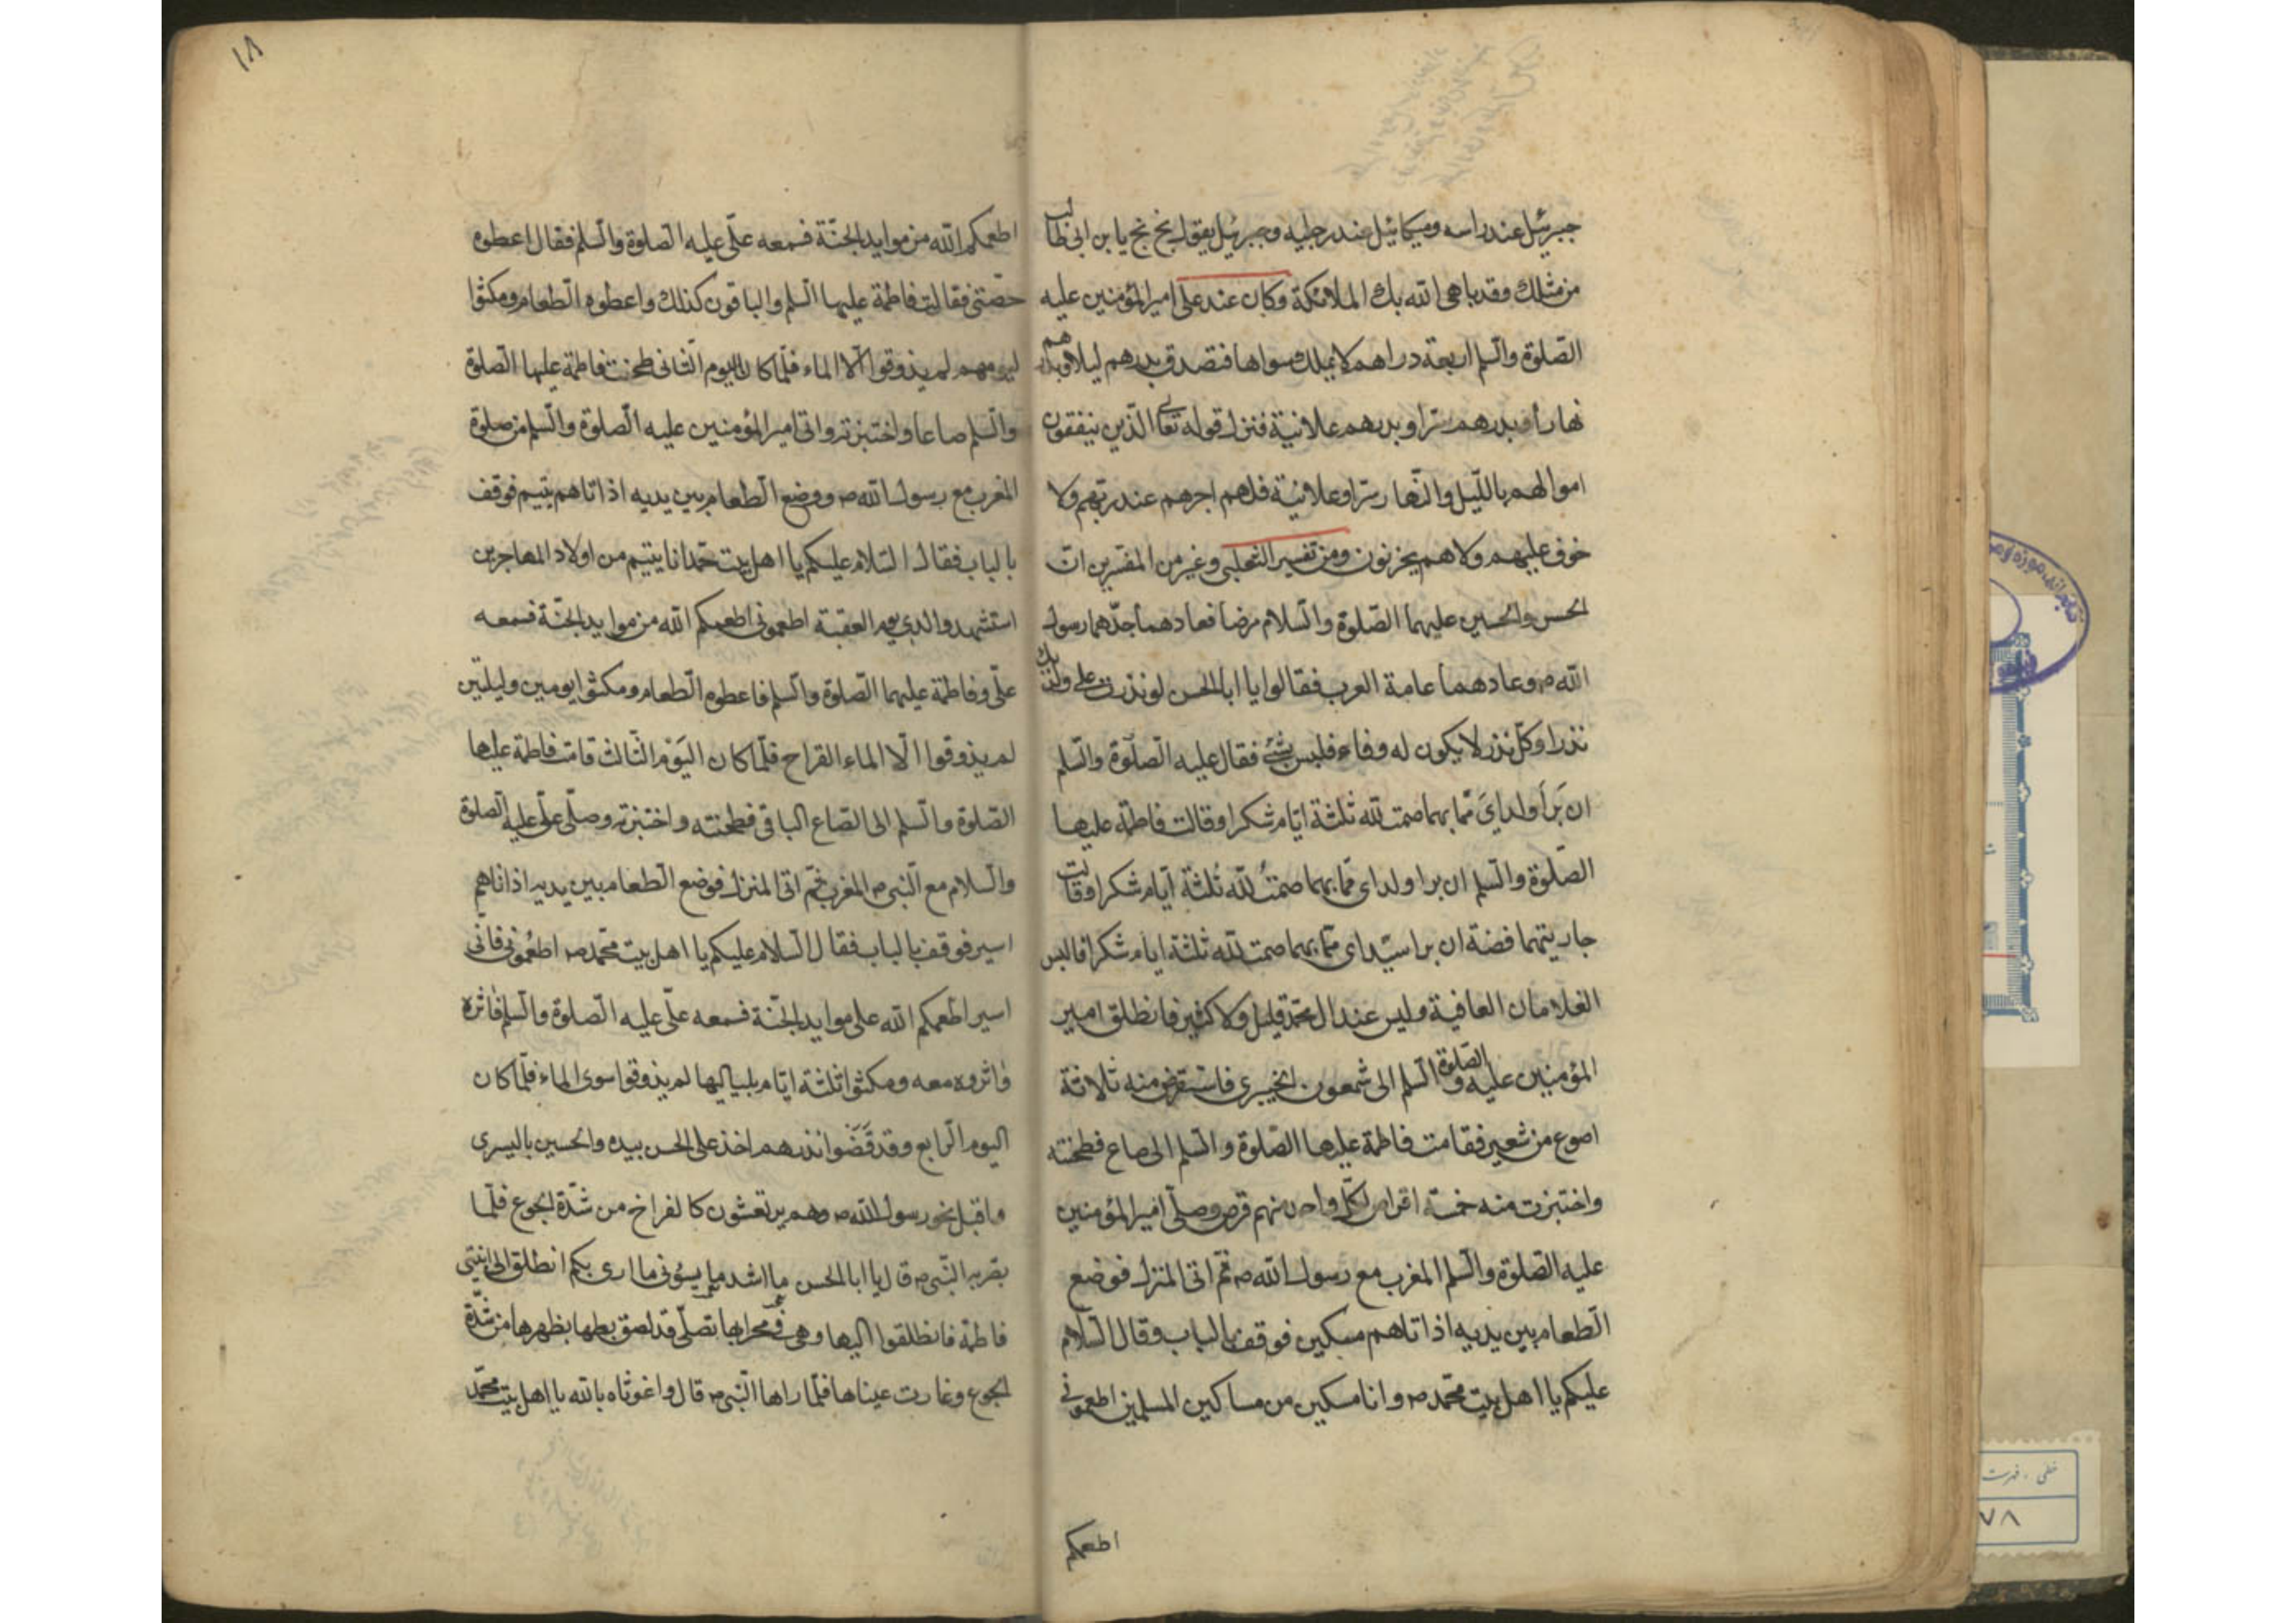 جبرئيل عند راسه وميكائيل عند رجليه وجبرئيل يقول بخ بخ يا بن ابى طالب
من مثلك وقد باهى الله بك الملائكة وكان عند على امير المؤمنين عليه
الصّلوة والسّلم اربعة دراهم لا يملك سواها فتصدق بدرهم ليلا وبدرهم
نهارا وبدرهم سرّا وبدرهم علانية فنزل قوله تعالى الّذين ينفقون
اموالهم باللّيل والنّهار سرّا وعلانية فلهم اجرهم عند ربّهم ولا
خوف عليهم ولا هم يحزنون ومن تفسير الثعلبى وغيره من المفسّرين انّ
الحسن والحسين عليهما الصّلوة والسّلام مرضا فعادهما جدّهما رسول
الله ص وعادهما عامة العرب فقالوا يا ابا الحسن لو نذرت على ولديك
نذرا وكلّ نذر لا يكون له وفاء فليس بشئ فقال عليه الصّلوة والسّلم
ان برأ ولداىَ ممّا بهما صمت لله ثلثة ايّام شكرا وقالت فاطمة عليها
الصّلوة والسّلم ان برا ولداى ممّا بهما صمتُ لله ثلثة ايّام شكرا وقالت
جاريتهما فضة ان برا سيّداى ممّا بهما صمت لله ثلثة ايام شكرا فالبس
الغلامان العافية وليس عند ال محمّد قليل ولا كثير فانطلق امير
المؤمنين عليه الصّلوة والسّلم الى شمعون الخيبرى فاستقرض منه ثلاثة
اصوع من شعير فقامت فاطمة عليها الصّلوة والسّلم الى صاع فطحنته
واختبزت منه خمسة اقراص لكلّ واحد منهم قرص وصلّى امير المؤمنين
عليه الصّلوة والسّلم المغرب مع رسول الله ص ثم اتى المنزل فوضع
الطّعام بين يديه اذ اتاهم مسكين فوقف بالباب وقال السّلام
عليكم يا اهل بيت محمّد ص وانا مسكين من مساكين المسلمين اطعمونى
اطعمكم
١٨
اطعمكم الله من موايد الجنّة فسمعه علىّ عليه الصلوة والسّلم فقال اعطوه
حصّتى فقالت فاطمة عليها السّلم والباقون كذلك واعطوه الطّعام ومكثوا
ليومهم لم يذوقوا الّا الماء فلمّا كان اليوم الثّانى طحنت فاطمة عليها الصّلوة
والسّلم صاعا واختبزته واتى امير المؤمنين عليه الصّلوة والسّلم من صلوة
المغرب مع رسول الله ص ووضع الطّعام بين يديه اذ اتاهم يتيم فوقف
بالباب فقال السّلام عليكم يا اهل بيت محمّد انا يتيم من اولاد المهاجرين
استشهد والدى يوم العقبة اطعمونى اطعمكم الله من موايد الجنّة فسمعه
علىّ وفاطمة عليهما الصّلوة والسّلم فاعطوه الطّعام ومكثوا يومين وليلتين
لم يذوقوا الّا الماء القراح فلمّا كان اليَوْم الثّالث قامت فاطمة عليها
الصّلوة والسّلم الى الصّاع الباقى فطحنته واختبزته وصلّى علىّ عليه الصلوة
والسّلام مع النّبى ص المغرب ثمّ اتى المنزل فوضع الطّعام بين يديه اذ اتاهم
اسير فوقف بالباب فقال السّلام عليكم يا اهل بيت محمّد ص اطعُمونى فانّى
اسير اطعمكم الله على موايد الجنّة فسمعه علىّ عليه الصّلوة والسّلم فاثره
واثروه معه ومكثوا ثلثة ايّام بلياليها لم يذوقوا سوى الماء فلمّا كان
اليوم الرّابع وقد قَضَوا نذرهم اخذ على الحسن بيده والحسين باليسرى
واقبل نحو رسول الله ص وهم يرتعشون كالفراخ من شدّة الجوع فلمّا
بصر به النّبى ص قال يا ابا الحسن ما اشد ما يسؤنى ما ارى بكم انطلق الى ابنتى
فاطمة فانطلقوا اليها وهى فى محرابها تصلّى قد لصق بطنها بظهرها من شدّة
الجوع وغارت عيناها فلمّا راها النّبى ص قال واغوثاه بالله يا اهل بيت محمّد